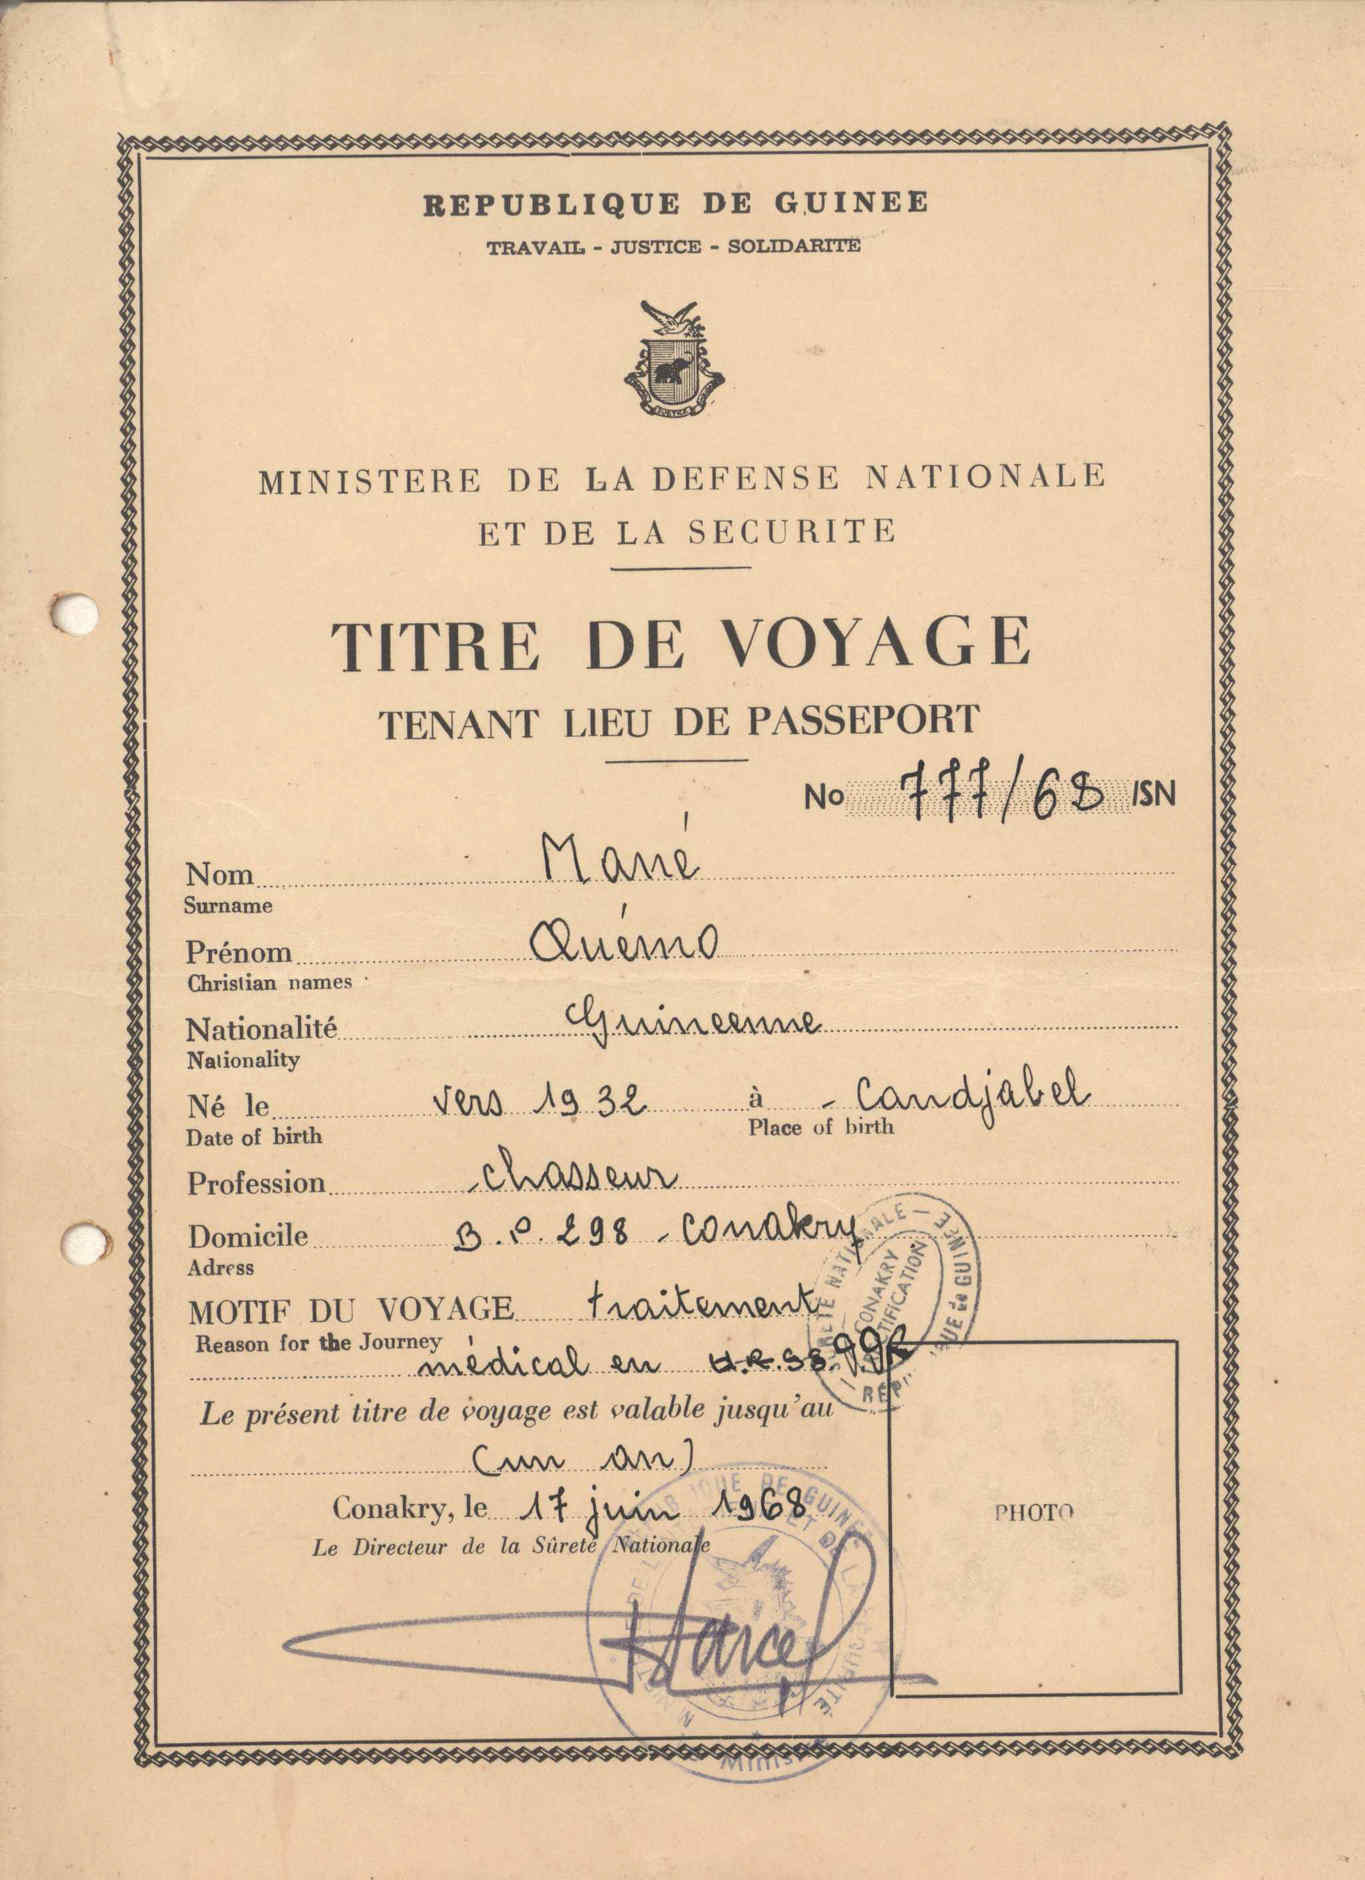 REPUBLIQUE DE GUINEE
TRAVAIL - JUSTICE - SOLIDARITE
MINISTERE DE LA DEFENSE NATIONALE
ET DE LA SECURITE
TITRE DE VOYAGE
TENANT LIEU DE PASSEPORT
No 777/68 /SN
Nom Mané
Surname
Prénom Quémo
Christian names
Nationalité Guineenne
Nationality
Né le vers 1932 à - Candjabel
Date of birth Place of birth
Profession chasseur
Domicile B.P. 298 - Conakry
Adress
MOTIF DU VOYAGE traitement
Reason for the Journey
médical en U.R.SS.
Le présent titre de voyage est valable jusqu'au
(un an)
Conakry, le 17 juin 1968
Le Directeur de la Sûreté Nationale
PHOTO
CONAKRY